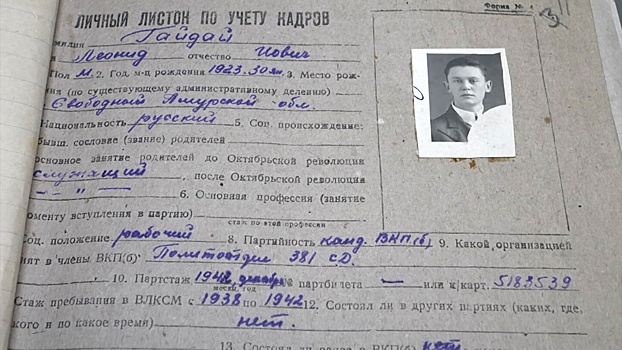 Форма № 4
ЛИЧНЫЙ ЛИСТОК ПО УЧЕТУ КАДРОВ
амилия Гайдай
я Леонид отчество Иович
Пол М. 2. Год, м-ц рождения 1923. 30 ян. 3. Место рож-
ния (по существующему административному делению)
Свободный Амурской обл.
Национальность русский 5. Соц. происхождение:
бывш. сословие (звание) родителей
основное занятие родителей до Октябрьской революции
служащий, после Октябрьской революции
— " — 6. Основная профессия (занятие
моменту вступления в партию)
стаж по этой профессии
Соц. положение рабочий 8. Партийность канд. ВКП(б) 9. Какой организацией
ят в члены ВКП(б) Политотдел 381 с.д.
10. Партстаж 1942, декабрь партбилета — или к/карт. 5183539
месяц, год
Стаж пребывания в ВЛКСМ с 1938 по 1942 12. Состоял ли в других партиях (каких, где,
кого и по какое время) нет.
13. Состоял ли ранее в ВКП(б) нет